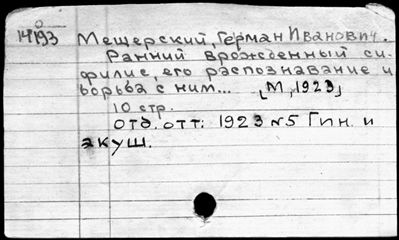 14193 Мещерский, Герман Иванович.
Ранний врожденный си-
филис, его распознавание и
борьба с ним... [М, 1923]
10 стр.
Отд. отт.: 1923 №5 Гин. и
акуш.